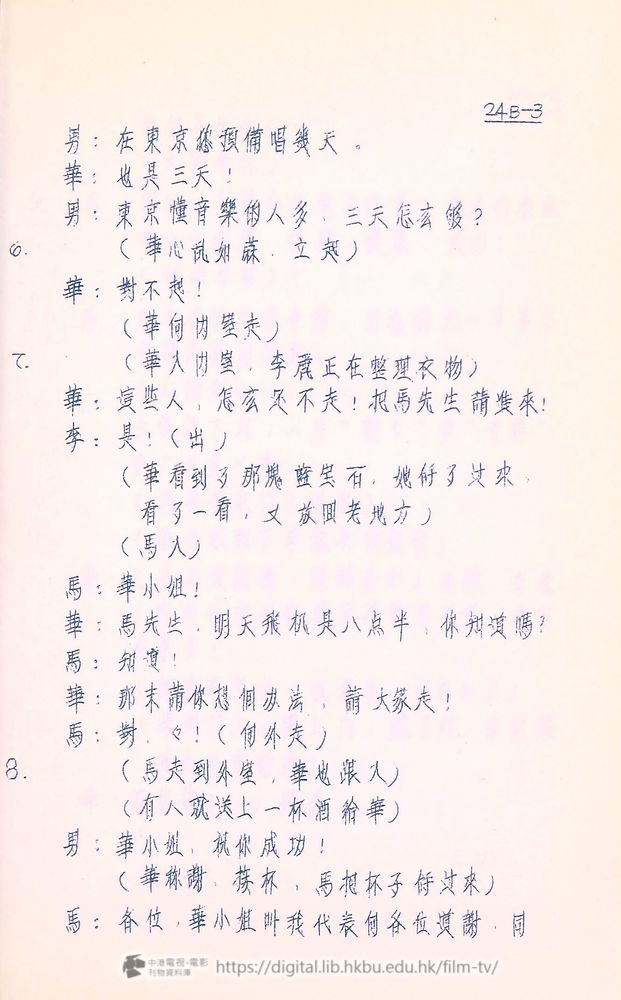 24B-3
男：在東京您預備唱幾天。
華：也是三天！
男：東京懂音樂的人多，三天怎么够？
6. （華心乱如蔴，立起）
華：對不起！
（華向内室走）
7. （華入内室，李麗正在整理衣物）
華：這些人，怎么还不走！把馬先生請進來！
李：是！（出）
（華看到了那塊藍宝石，她仔了过來，
看了一看，又放回老地方）
（馬入）
馬：華小姐！
華：馬先生，明天飛机是八点半，你知道嗎？
馬：知道！
華：那末請你想個办法，請大家走！
馬：對，々！（向外走）
8. （馬走到外室，華也跟入）
（有人就送上一杯酒給華）
男：華小姐，祝你成功！
（華称謝，接杯，馬把杯子仔过來）
馬：各位，華小姐叫我代表向各位道謝，同
中港電視·電影
刊物資料庫
https://digital.lib.hkbu.edu.hk/film-tv/